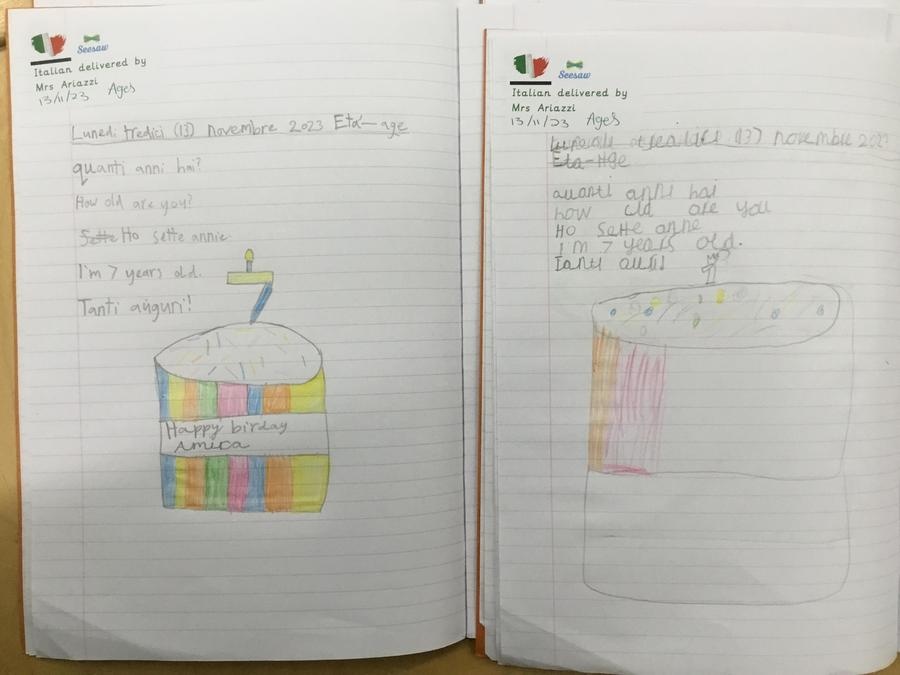 Seesaw
Italian delivered by
Mrs Ariazzi
13/11/23 Ages
Lunedì tredici (13) novembre 2023 Età - age
quanti anni hai?
How old are you?
Sette Ho sette annie
I'm 7 years old.
Tanti aúguri!
7
Happy birday
Amica
Seesaw
Italian delivered by
Mrs Ariazzi
13/11/23 Ages
(13) novembre 202?
Eta-Age
auanti anni hai
how old are you
Ho Sette anne
I m 7 years old.
Tanti